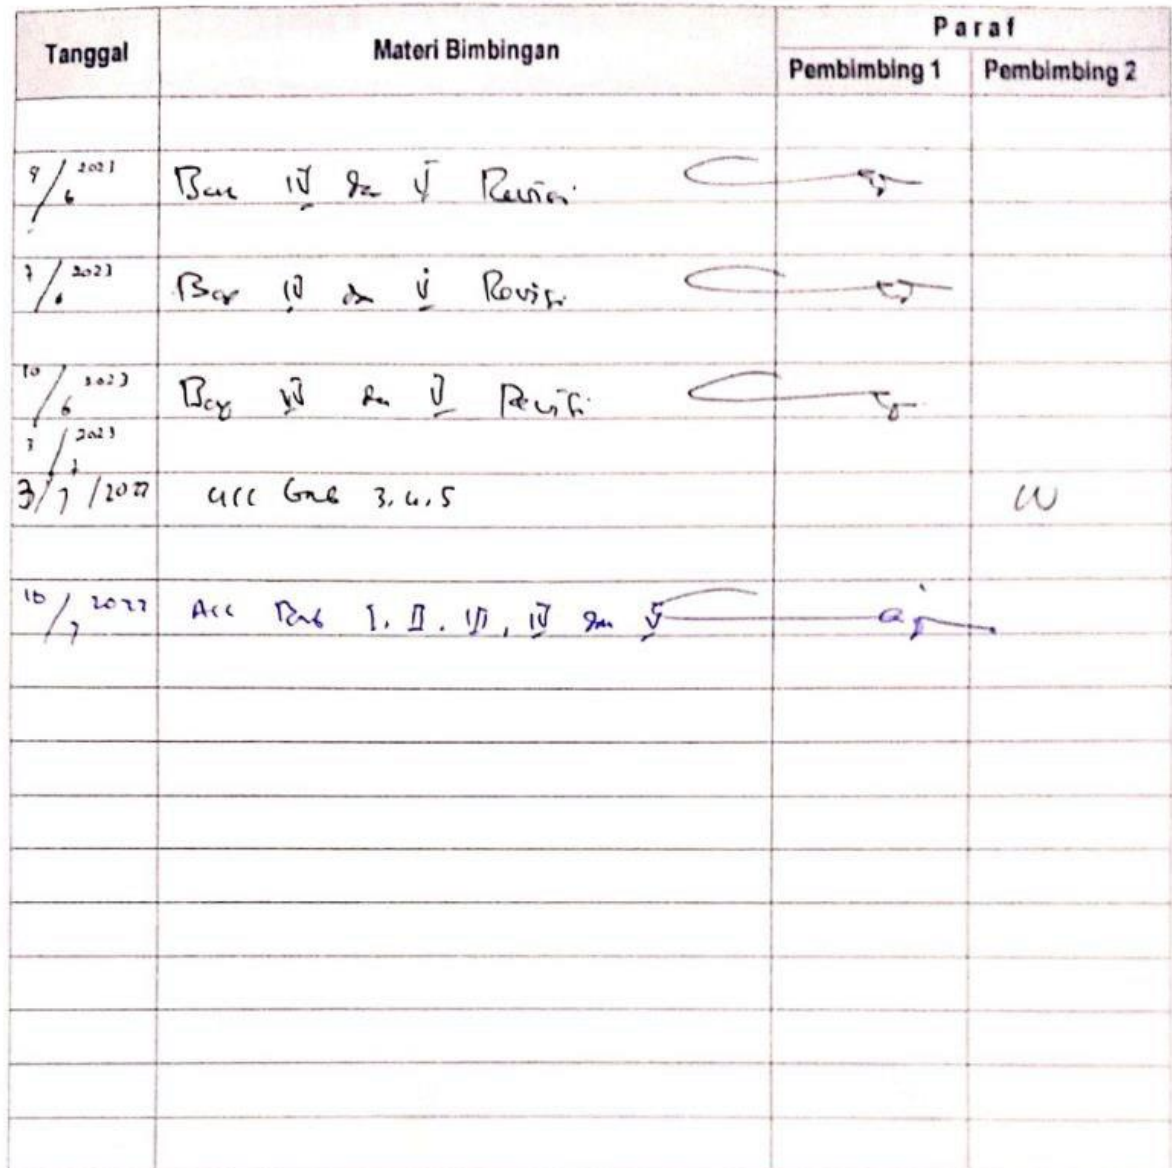 Tanggal Materi Bimbingan Paraf
Pembimbing 1 Pembimbing 2
9/6 2023 Bab IV dan V Revisi
7/6 2023 Bab IV dan V Revisi
10/6 2023 Bab IV dan V Revisi
3/7 2023
3/7/2023 acc bab 3,4,5
10/7 2023 Acc Bab I, II, III, IV dan V